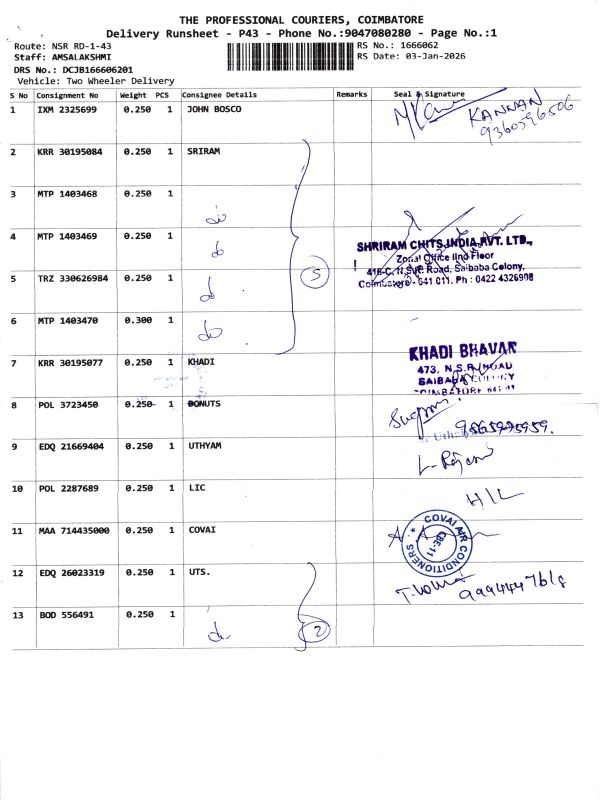 THE PROFESSIONAL COURIERS, COIMBATORE
Delivery Runsheet - P43 - Phone No.:9047080280 - Page No.:1
Route: NSR RD-1-43 RS No.: 1666062
Staff: AMSALAKSHMI RS Date: 03-Jan-2026
DRS No.: DCJB166606201
Vehicle: Two Wheeler Delivery
S No Consignment No Weight PCS Consignee Details Remarks Seal & Signature
1 IXM 2325699 0.250 1 JOHN BOSCO KANNAN
9360596506
2 KRR 30195084 0.250 1 SRIRAM
3 MTP 1403468 0.250 1 do
4 MTP 1403469 0.250 1 do
SHRIRAM CHITS INDIA PVT. LTD.,
Zonal Office IInd Floor
5 TRZ 330626984 0.250 1 do 5
418-C, N.S.R. Road, Saibaba Colony,
Coimbatore - 641 011. Ph : 0422 4326908
6 MTP 1403470 0.300 1 do
7 KRR 30195077 0.250 1 KHADI
KHADI BHAVAN
473. N.S.R. ROAD
SAIBABA COLONY
COIMBATORE 641 011
8 POL 3723450 0.250 1 DONUTS
9 EDQ 21669404 0.250 1 UTHYAM
10 POL 2287689 0.250 1 LIC H/L
11 MAA 714435000 0.250 1 COVAI
COVAI AIR CONDITIONERS
CBE-11
12 EDQ 26023319 0.250 1 UTS.
13 BOD 556491 0.250 1 do 2